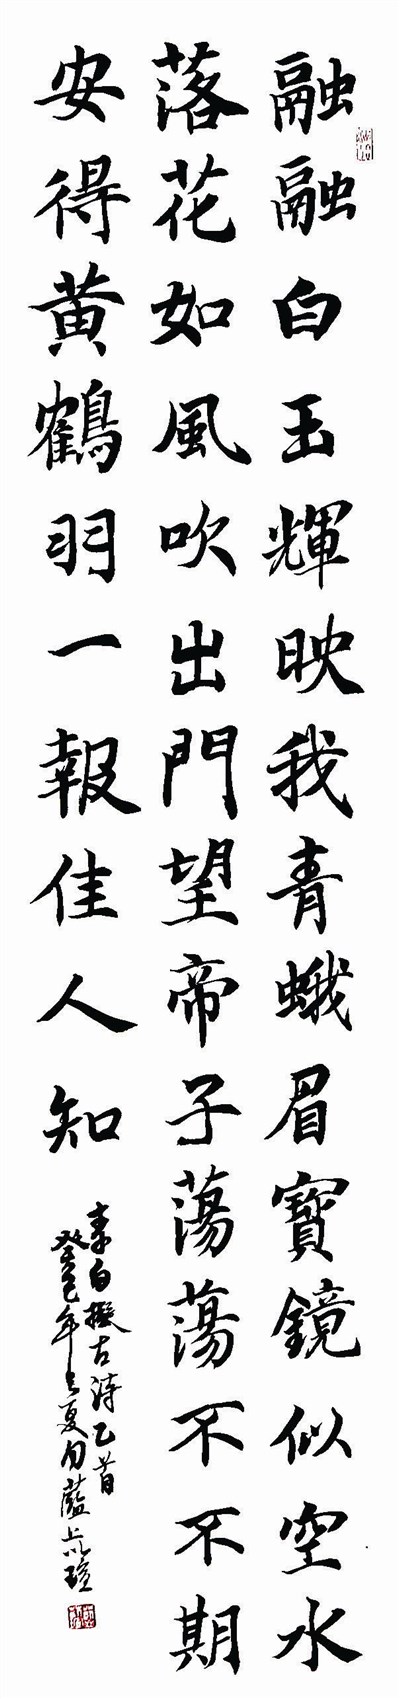 融融白玉輝映我青蛾眉寶鏡似空水
落花如風吹出門望帝子蕩蕩不不期
安得黄鶴羽一報佳人知
李白擬古詩乙首
癸巳年之夏月藍